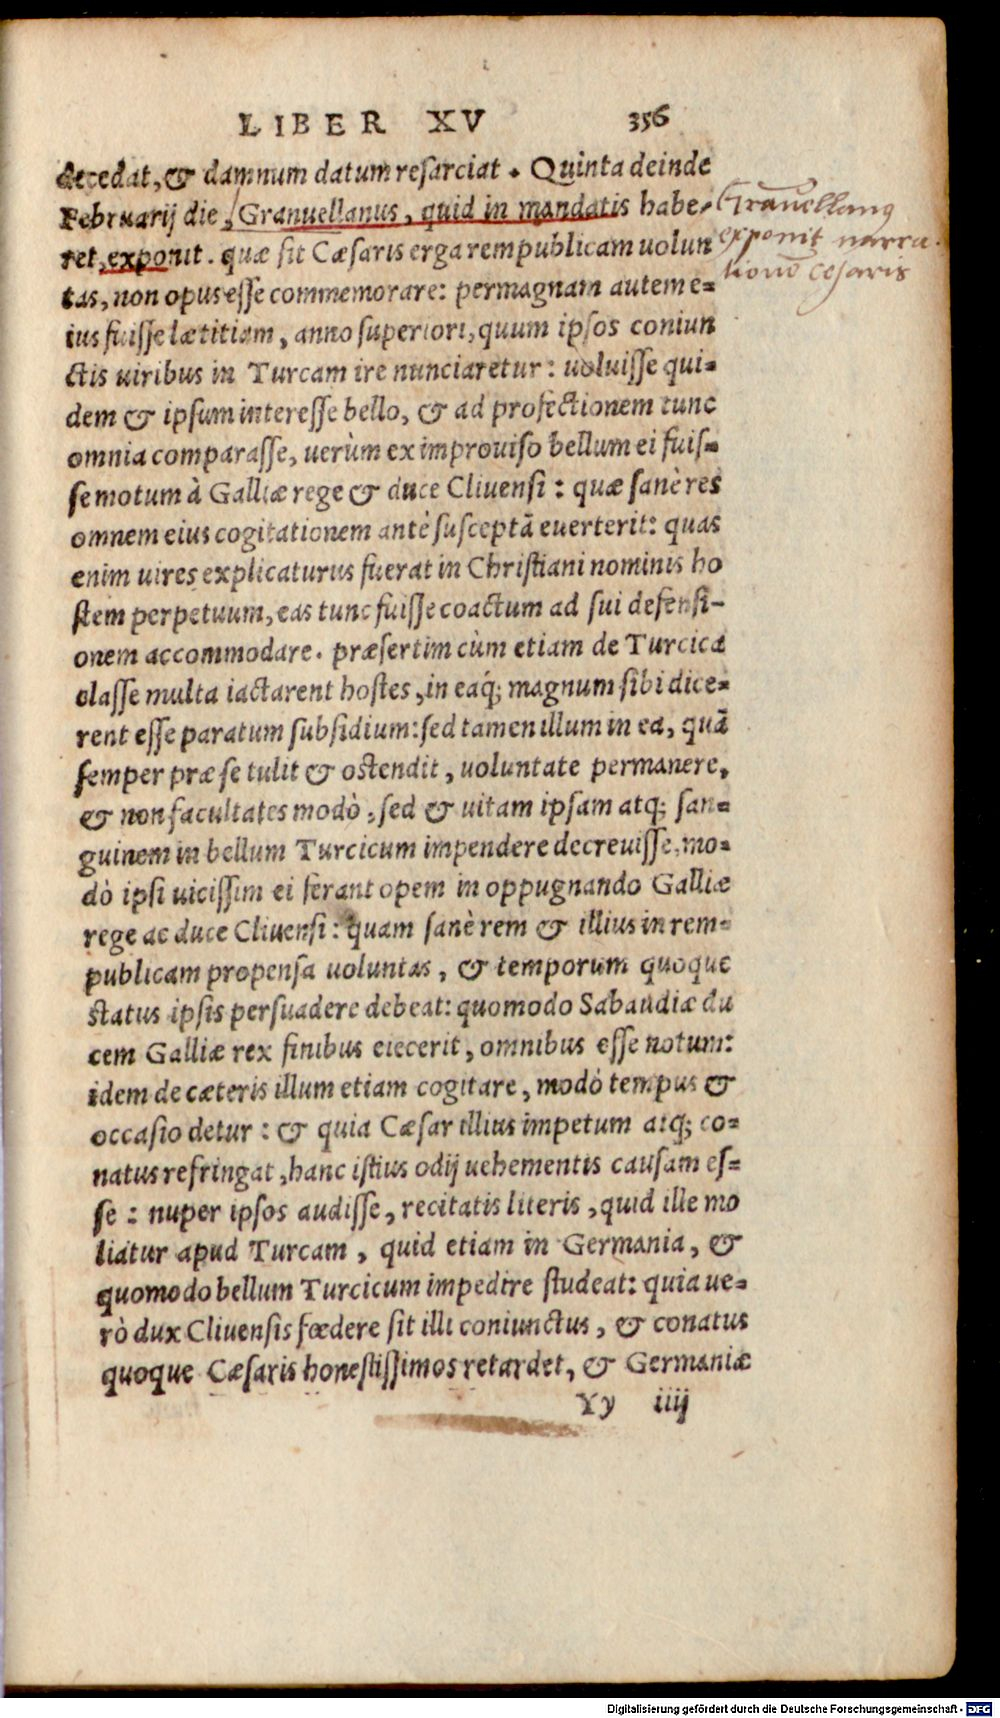 LIBER XV 356
decedat, & damnum datum resarciat. Quinta deinde
Februarij die, Granuellanus, quid in mandatis habe-
ret, exponit. quæ sit Cæsaris erga rempublicam uolun
tas, non opus esse commemorare: permagnam autem e-
ius fuisse lætitiam, anno superiori, quum ipsos coniun
ctis uiribus in Turcam ire nunciaretur: uoluisse qui-
dem & ipsum interesse bello, & ad profectionem tunc
omnia comparasse, uerùm ex improuiso bellum ei fuis-
se motum à Galliæ rege & duce Cliuensi: quæ sanè res
omnem eius cogitationem antè susceptā euerterit: quas
enim uires explicaturus fuerat in Christiani nominis ho
stem perpetuum, eas tunc fuisse coactum ad sui defensi-
onem accommodare. præsertim cùm etiam de Turcica
classe multa iactarent hostes, in eaq; magnum sibi dice-
rent esse paratum subsidium: sed tamen illum in ea, quā
semper præ se tulit & ostendit, uoluntate permanere,
& non facultates modò, sed & uitam ipsam atq; san-
guinem in bellum Turcicum impendere decreuisse, mo-
dò ipsi uicissim ei ferant opem in oppugnando Galliæ
rege ac duce Cliuensi: quam sanè rem & illius in rem-
publicam propensa uoluntas, & temporum quoque
status ipsis persuadere debeat: quomodo Sabaudiæ du
cem Galliæ rex finibus eiecerit, omnibus esse notum:
idem de cæteris illum etiam cogitare, modò tempus &
occasio detur: & quia Cæsar illius impetum atq; co-
natus refringat, hanc istius odij uehementis causam es-
se: nuper ipsos audisse, recitatis literis, quid ille mo
liatur apud Turcam, quid etiam in Germania, &
quomodo bellum Turcicum impedire studeat: quia ue-
rò dux Cliuensis fœdere sit illi coniunctus, & conatus
quoque Cæsaris honestissimos retardet, & Germaniæ
Yy iiij
Granuellanus
exponit narra
tionē Cesaris
Digitalisierung gefördert durch die Deutsche Forschungsgemeinschaft - DFG